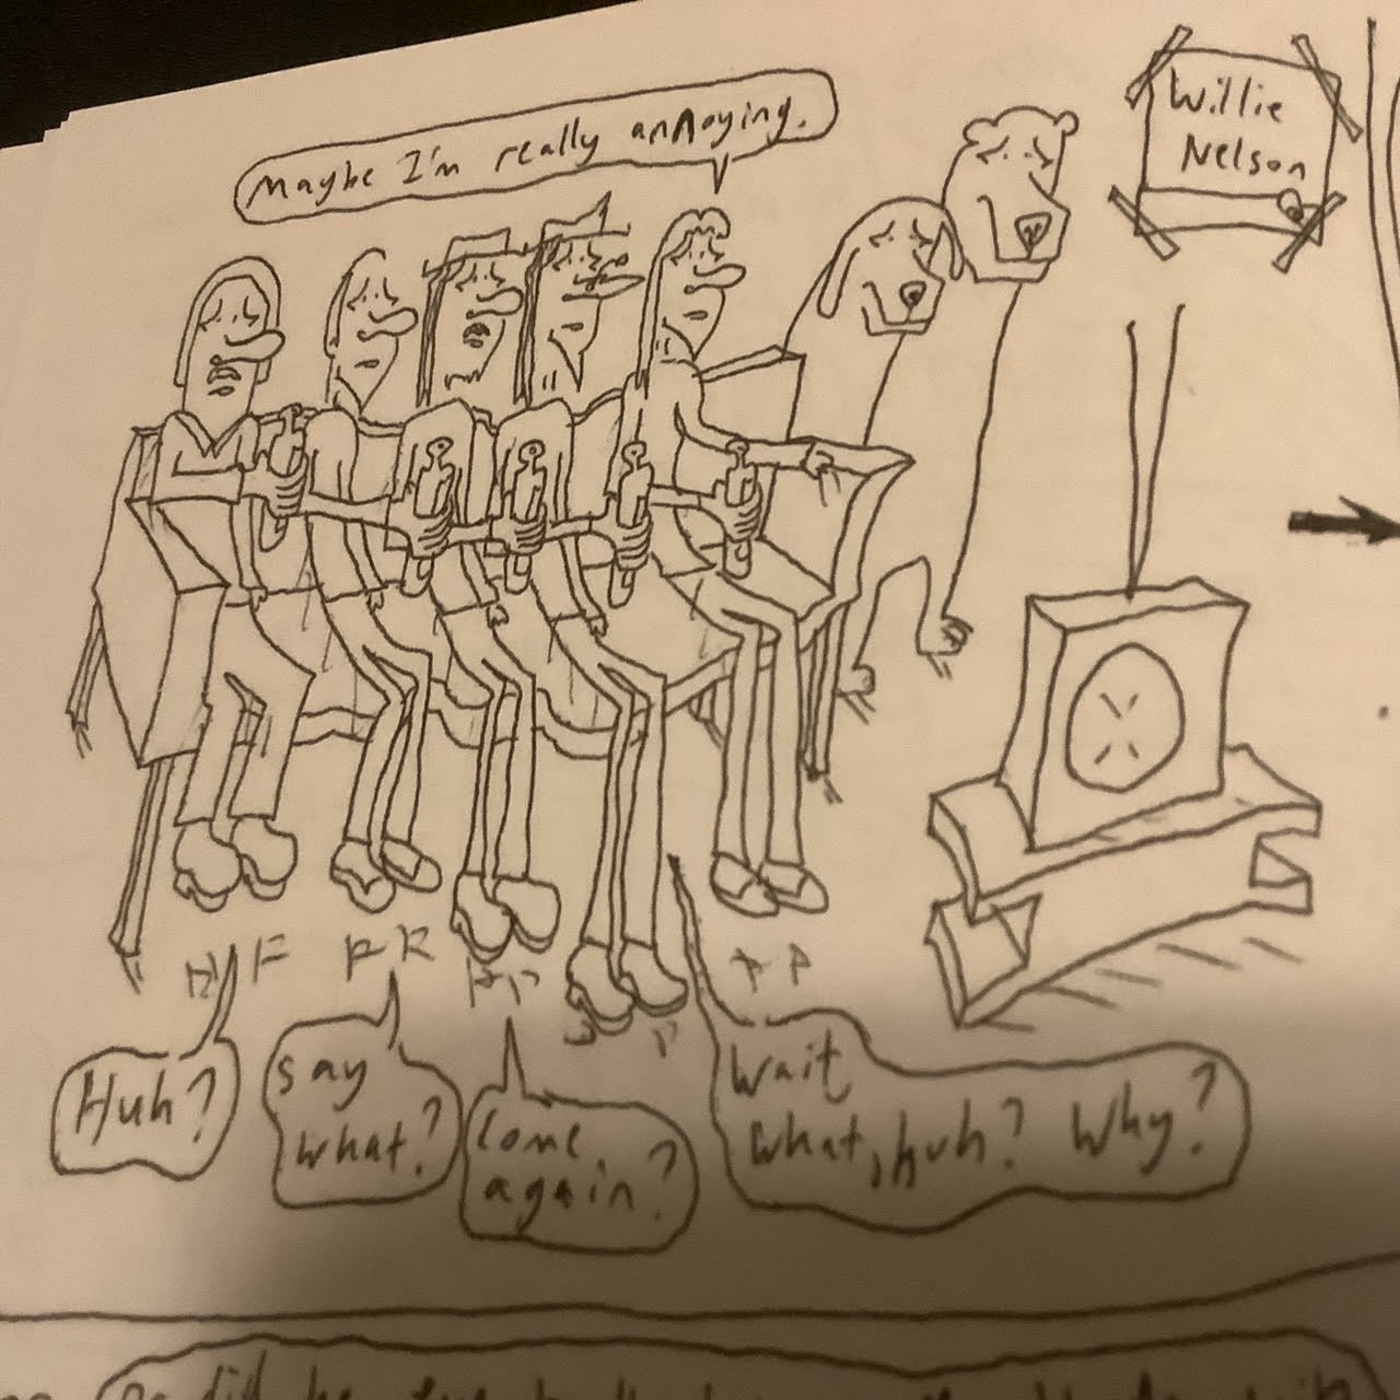 Maybe I'm really annoying.
Willie
Nelson
Huh?
say
what?
Come
again?
Wait
what, huh? Why?